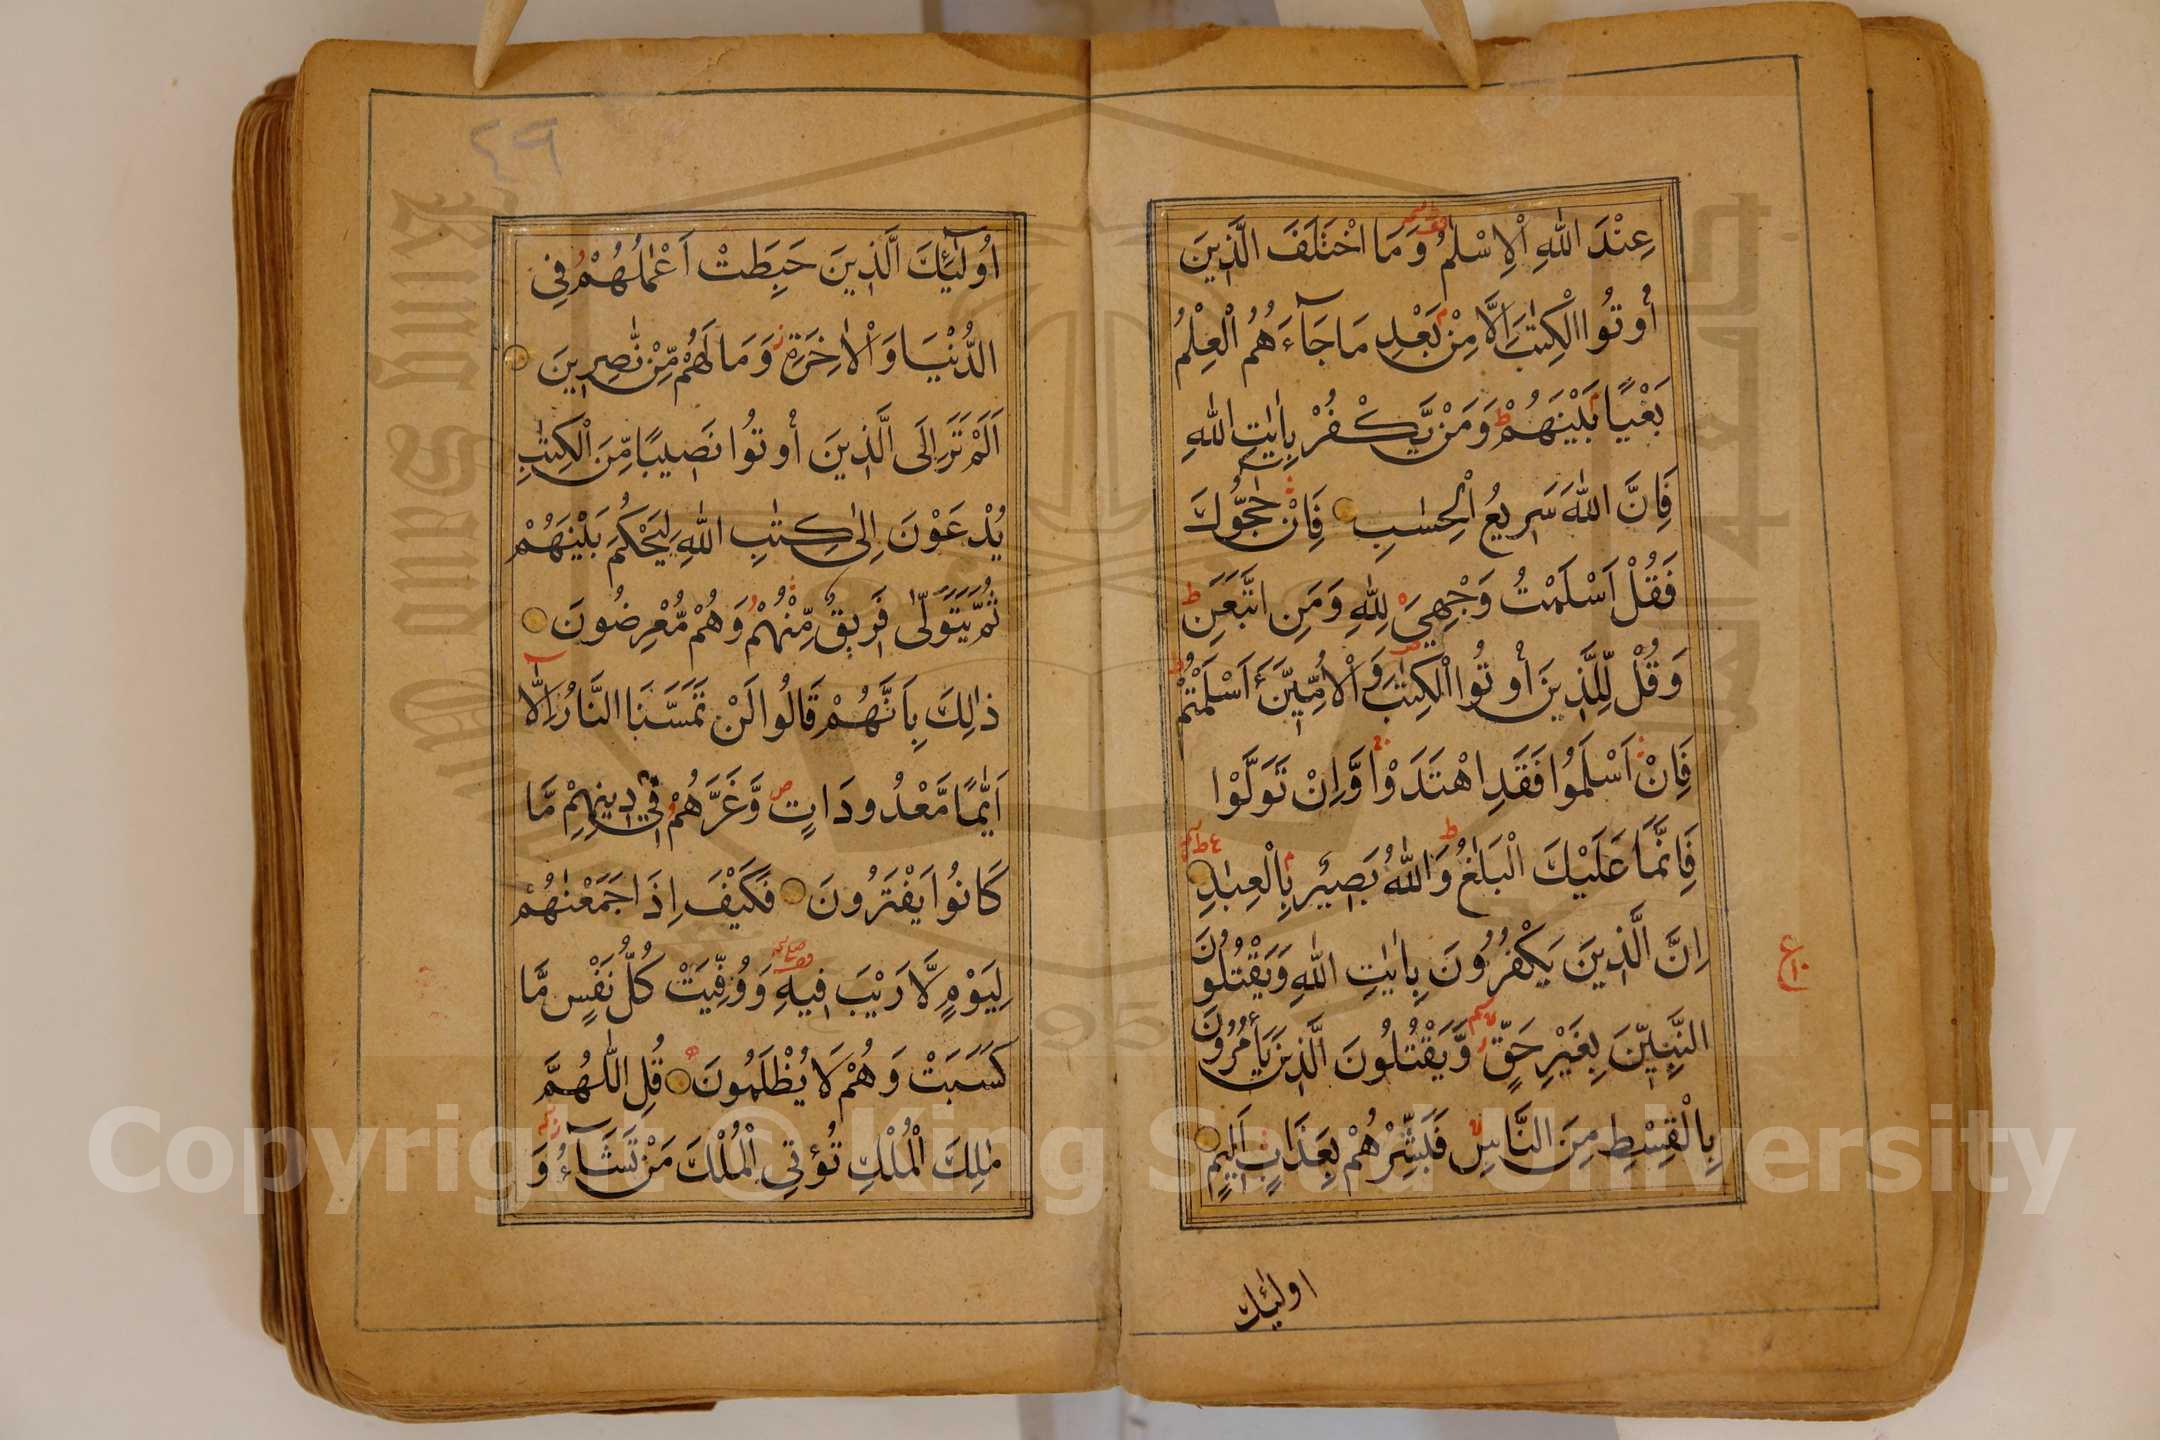 عِنْدَ اللّٰهِ الْاِسْلٰمُ وَمَا اخْتَلَفَ الَّذِينَ
أُوتُوا الْكِتٰبَ اِلَّا مِنْ بَعْدِ مَا جَآءَهُمُ الْعِلْمُ
بَغْيًا بَيْنَهُمْ ط وَمَنْ يَّكْفُرْ بِاٰيٰتِ اللّٰهِ
فَاِنَّ اللّٰهَ سَرِيعُ الْحِسٰبِ فَاِنْ حَٓاجُّوكَ
فَقُلْ اَسْلَمْتُ وَجْهِيَ لِلّٰهِ وَمَنِ اتَّبَعَنِ ط
وَقُلْ لِّلَّذِينَ أُوتُوا الْكِتٰبَ وَالْاُمِّيّٖنَ ءَاَسْلَمْتُمْ ط
فَاِنْ اَسْلَمُوا فَقَدِ اهْتَدَوْا وَّاِنْ تَوَلَّوْا
فَاِنَّمَا عَلَيْكَ الْبَلٰغُ ط وَاللّٰهُ بَصِيرٌ بِالْعِبٰدِ
اِنَّ الَّذِينَ يَكْفُرُونَ بِاٰيٰتِ اللّٰهِ وَيَقْتُلُونَ
النَّبِيّٖنَ بِغَيْرِ حَقٍّ وَّيَقْتُلُونَ الَّذِينَ يَأْمُرُونَ
بِالْقِسْطِ مِنَ النَّاسِ فَبَشِّرْهُمْ بِعَذَابٍ اَلِيمٍ
اولٰئك
ع
١٠
٤٩
اُولٰٓئِكَ الَّذِينَ حَبِطَتْ اَعْمٰلُهُمْ فِي
الدُّنْيَا وَالْاٰخِرَةِ وَمَا لَهُمْ مِّنْ نّٰصِرِينَ
اَلَمْ تَرَ اِلَى الَّذِينَ أُوتُوا نَصِيبًا مِّنَ الْكِتٰبِ
يُدْعَوْنَ اِلٰى كِتٰبِ اللّٰهِ لِيَحْكُمَ بَيْنَهُمْ
ثُمَّ يَتَوَلّٰى فَرِيقٌ مِّنْهُمْ وَهُمْ مُّعْرِضُونَ
ذٰلِكَ بِاَنَّهُمْ قَالُوا لَنْ تَمَسَّنَا النَّارُ اِلَّآ
اَيّٰمًا مَّعْدُودَاتٍ ص وَّغَرَّهُمْ فِي دِينِهِمْ مَّا
كَانُوا يَفْتَرُونَ فَكَيْفَ اِذَا جَمَعْنٰهُمْ
لِيَوْمٍ لَّا رَيْبَ فِيهِ وَوُفِّيَتْ كُلُّ نَفْسٍ مَّا
كَسَبَتْ وَهُمْ لَا يُظْلَمُونَ قُلِ اللّٰهُمَّ
مٰلِكَ الْمُلْكِ تُؤْتِي الْمُلْكَ مَنْ تَشَآءُ وَ
Copyright © King Saud University